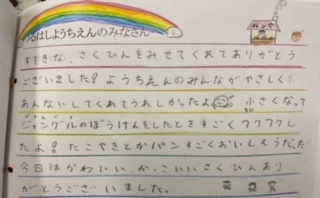 つるはしようちえんのみなさん
パンや
すてきな、さくひんをみせてくれてありがとう
ございました！ようちえんのみんながやさしく
あんないしてくれてうれしかったよ 小さくなって
ジャングルのぼうけんをしたときすごくワクワクし
たよ！たこやきとかパンすごくおいしそうだった
今日はかわいい、かっこいいさくひんあり
がとうございいました。